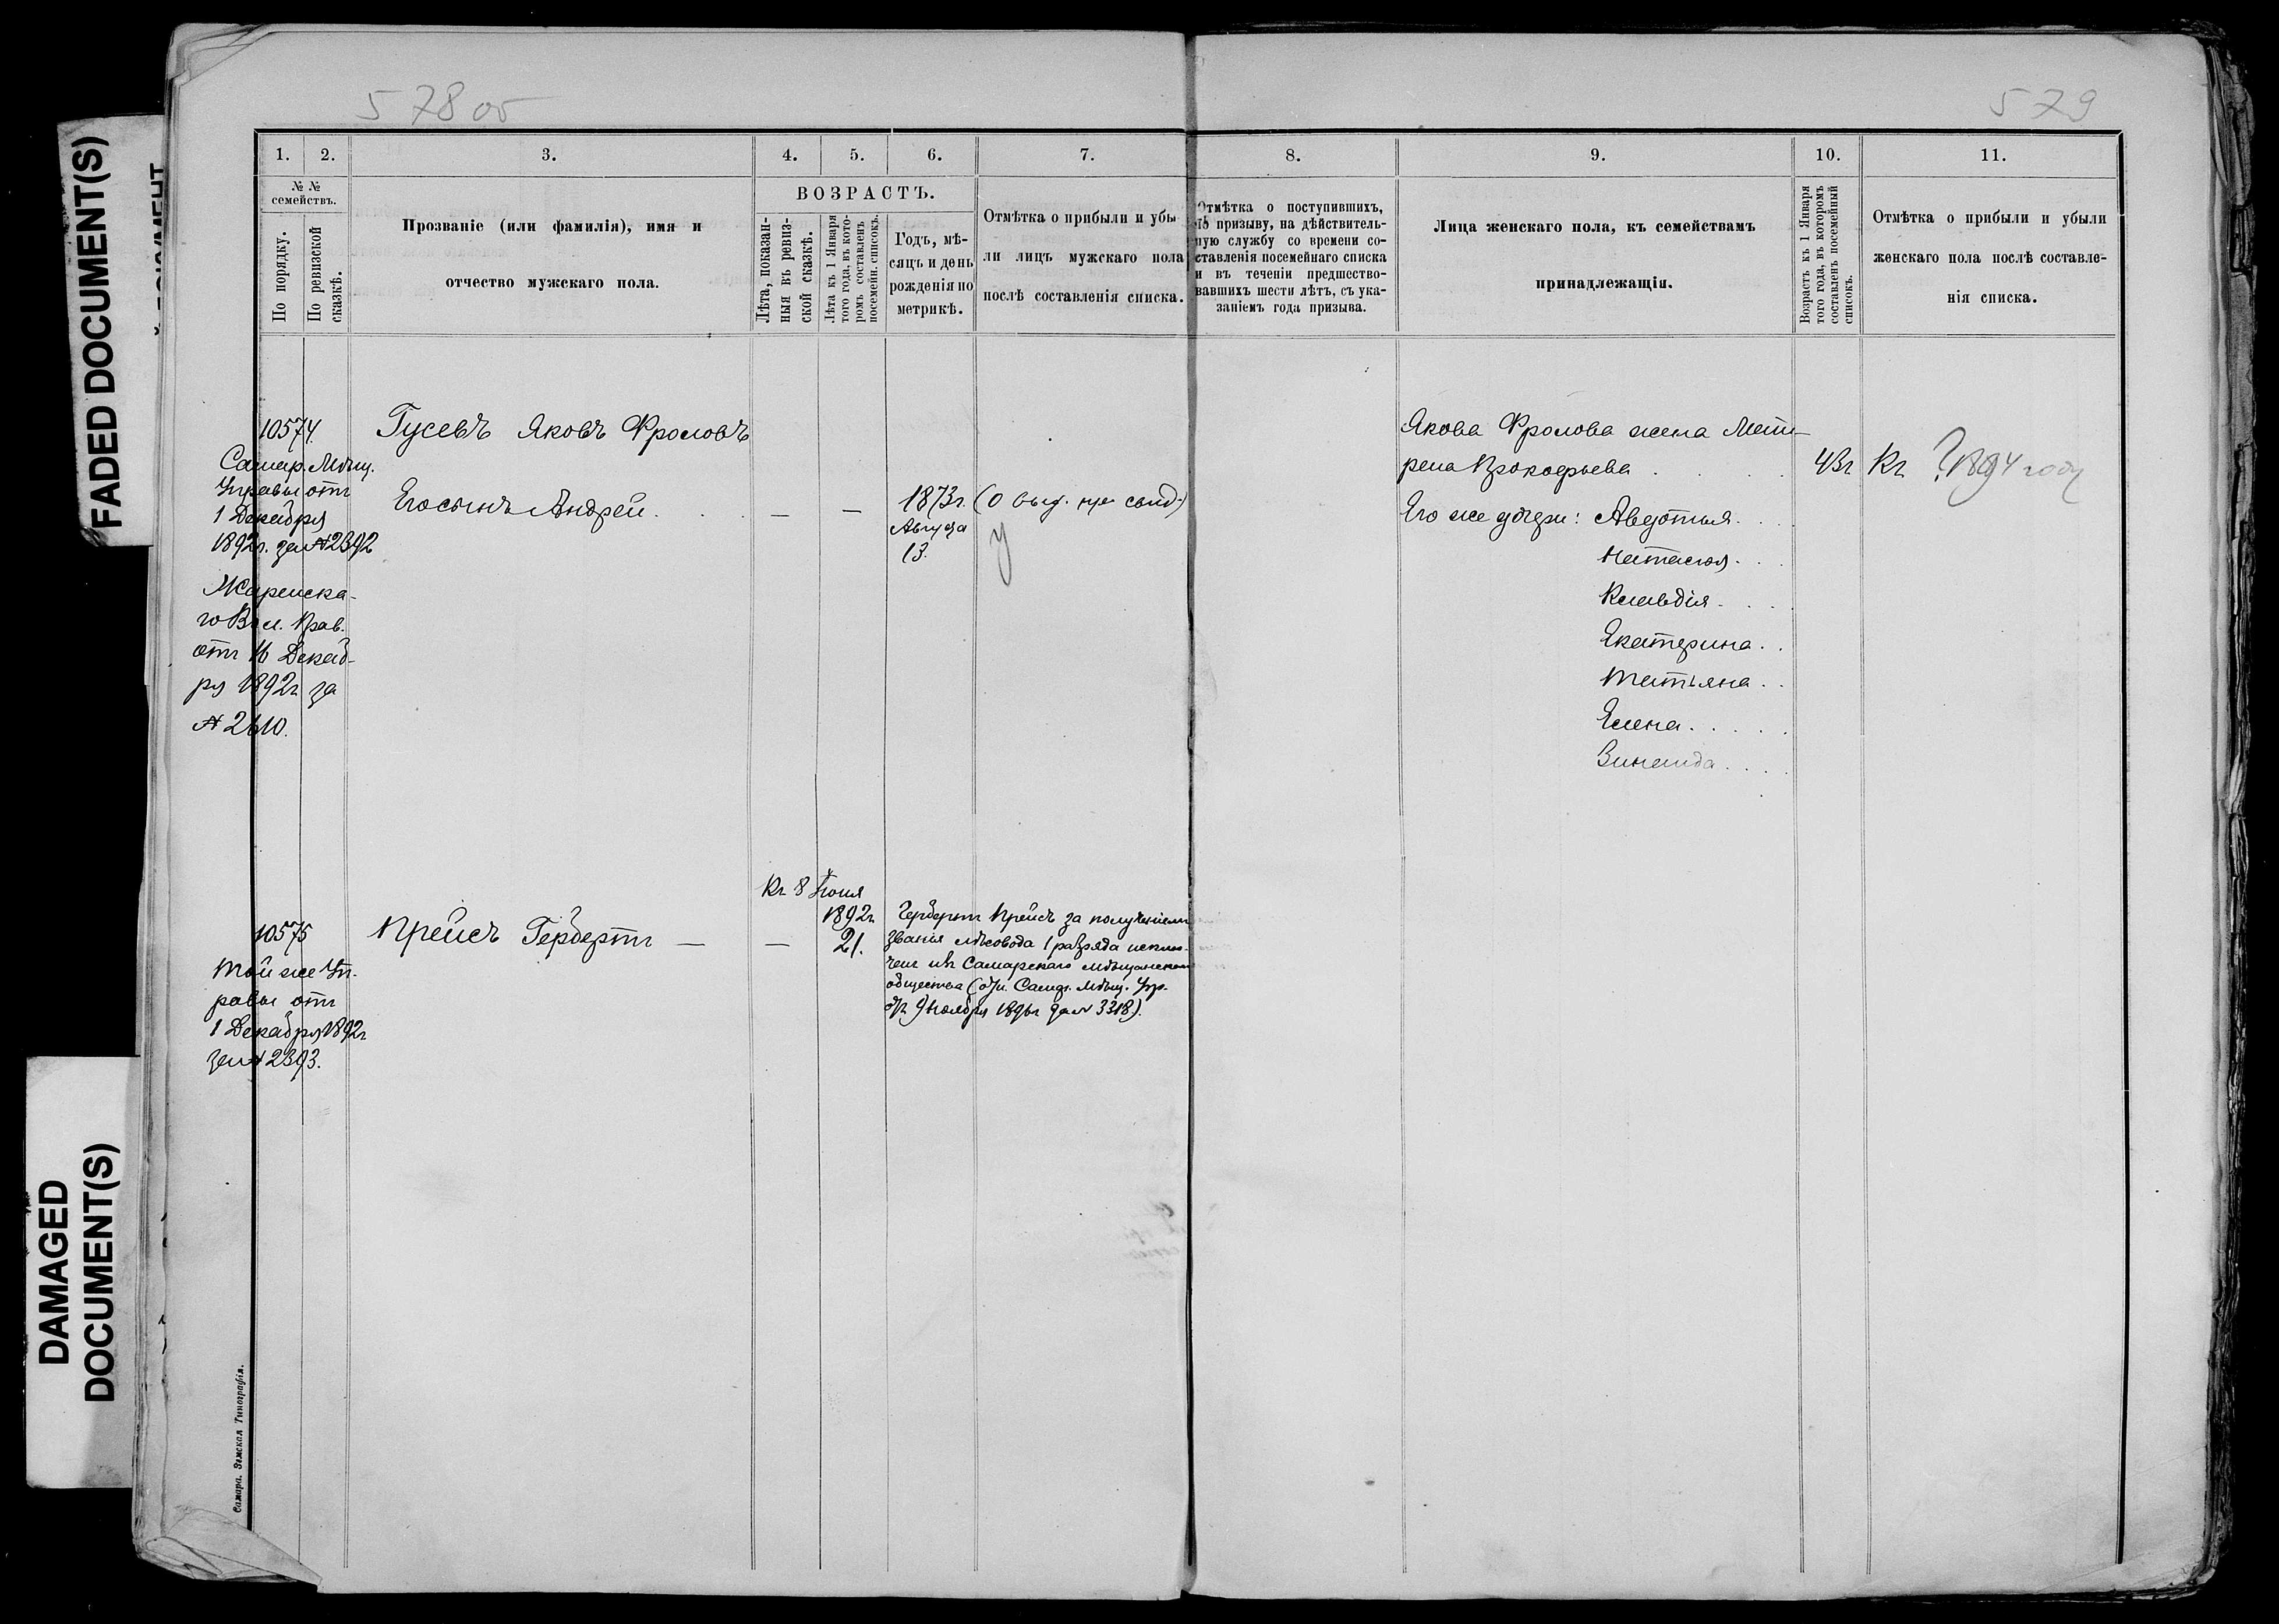 FADED DOCUMENT(S)
DAMAGED
DOCUMENT(S)
578 об
579
1.
2.
3.
4.
5.
6.
7.
8.
9.
10.
11.
№ №
семействъ.
По порядку.
По ревизской
сказкѣ.
Прозваніе (или фамилія), имя и
отчество мужскаго пола.
ВОЗРАСТЪ.
Лѣта, показан-
ныя въ ревиз-
ской сказкѣ.
Лѣта къ 1 Января
того года, въ кото-
ромъ составленъ
посемейн. списокъ.
Годъ, мѣ-
сяцъ и день
рожденія по
метрикѣ.
Отмѣтка о прибыли и убы
ли лицъ мужскаго пола
послѣ составленія списка.
Отмѣтка о поступившихъ,
по призыву, на дѣйствитель-
ную службу со времени со-
ставленія посемейнаго списка
и въ теченіи предшество-
вавшихъ шести лѣтъ, съ ука-
заніемъ года призыва.
Лица женскаго пола, къ семействамъ
принадлежащія.
Возрастъ къ 1 Января
того года, въ которомъ
составленъ посемейный
списокъ.
Отмѣтка о прибыли и убыли
женскаго пола послѣ составле-
нія списка.
10574.
Самар. Мѣщ.
Управы отъ
1 Декабря
1892г. за № 2392
го Вол. Прав.
отъ 16 Декаб-
ря 1892г за
№ 2610.
Гусевъ Яковъ Фроловъ
Его сынъ Андрей. . . — —
1873г.
Августа
13.
У
Якова Фролова жена Мат-
рена Прокофьева . . . . 43г Къ ? 1894 году
Его же дочери: Авдотья. . .
Наталья. . .
Клавдія. . . .
Екатерина. .
Татьяна. .
Елена. . . . .
Зинаида. . . .
Къ 8 Іюня
1892г
21.
10575
Той же Уп-
равы отъ
1 Декабря 1892г
за № 2393.
Прейсъ Гербертъ — —
Гербертъ Прейсъ за полученіемъ
званія лѣсовода 1 разряда исклю-
ченъ изъ Самарскаго мѣщанскаго
общества (от. Самар. Мѣщ. Упр.
отъ 9 ноября 1896г за № 3318).
Самара. Земская Типографія.